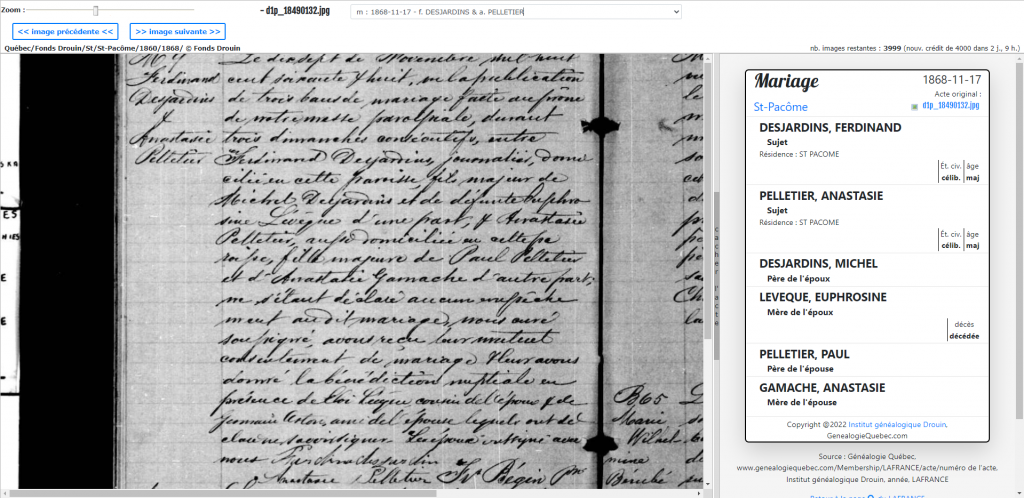 Zoom :
- d1p_18490132.jpg
m : 1868-11-17 - f. DESJARDINS & a. PELLETIER
<< image précédente <<
>> image suivante >>
Québec/Fonds Drouin/St/St-Pacôme/1860/1868/ © Fonds Drouin
nb. images restantes : 3999 (nouv. crédit de 4000 dans 2 j., 9 h.)
M 9
Ferdinand
Desjardins
&
Anastasie
Pelletier
Le dixsept de Novembre mil huit
cent soixante & huit, vu la publication
de trois bans de mariage faite au prône
de notre messe paroissiale, durant
trois dimanches consécutifs, entre
Ferdinand Desjardins, journalier, domi
cilié en cette paroisse, fils majeur de
Michel Desjardins et de défunte Euphro
sine Lévêque d'une part, & Anastasie
Pelletier, aussi domiciliée en cette pa
roisse, fille majeure de Paul Pelletier
et d'Anastasie Gamache d'autre part;
ne s'étant déclaré aucun empêche
ment au dit mariage, nous curé
soussigné, avons reçu leur mutuel
consentement de mariage & leur avons
donné la bénédiction nuptiale en
présence de Eloi Lévêque cousin de l'époux & de
Germain ami de l'épouse lesquels ont dé
claré ne savoir signer L'épouse a signé avec
nous
Anastasie Pelletier Bégin Ptre
B65
Marie
Mariage
1868-11-17
Acte original :
St-Pacôme
d1p_18490132.jpg
DESJARDINS, FERDINAND
Sujet
Résidence : ST PACOME
Ét. civ. âge
célib. maj
PELLETIER, ANASTASIE
Sujet
Résidence : ST PACOME
Ét. civ. âge
célib. maj
DESJARDINS, MICHEL
Père de l'époux
LEVEQUE, EUPHROSINE
Mère de l'époux
décès
décédée
PELLETIER, PAUL
Père de l'épouse
GAMACHE, ANASTASIE
Mère de l'épouse
Copyright ©2022 Institut généalogique Drouin,
GenealogieQuebec.com
Source : Généalogie Québec.
www.genealogiequebec.com/Membership/LAFRANCE/acte/numéro de l'acte.
Institut généalogique Drouin, année. LAFRANCE